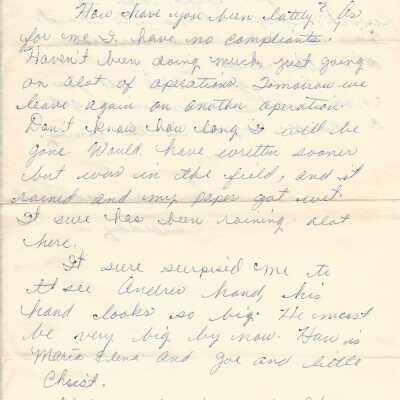 How have you been lately? As
for me I have no compliants.
Haven't been doing much, just going
on alot of operations. Tomorrow we
leave again on another operation.
Don't know how long I will be
gone. Would have written sooner
but was in the field, and it
rained and my paper got wet.
It sure has been raining alot
here.
It sure surprised me to
see Andres hand, his
hand looks so big. He must
be very big by now. How is
Maria Elena and Joe and little
Christ.